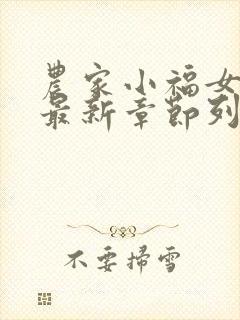 農家小福女
最新章節列
不要掃雪